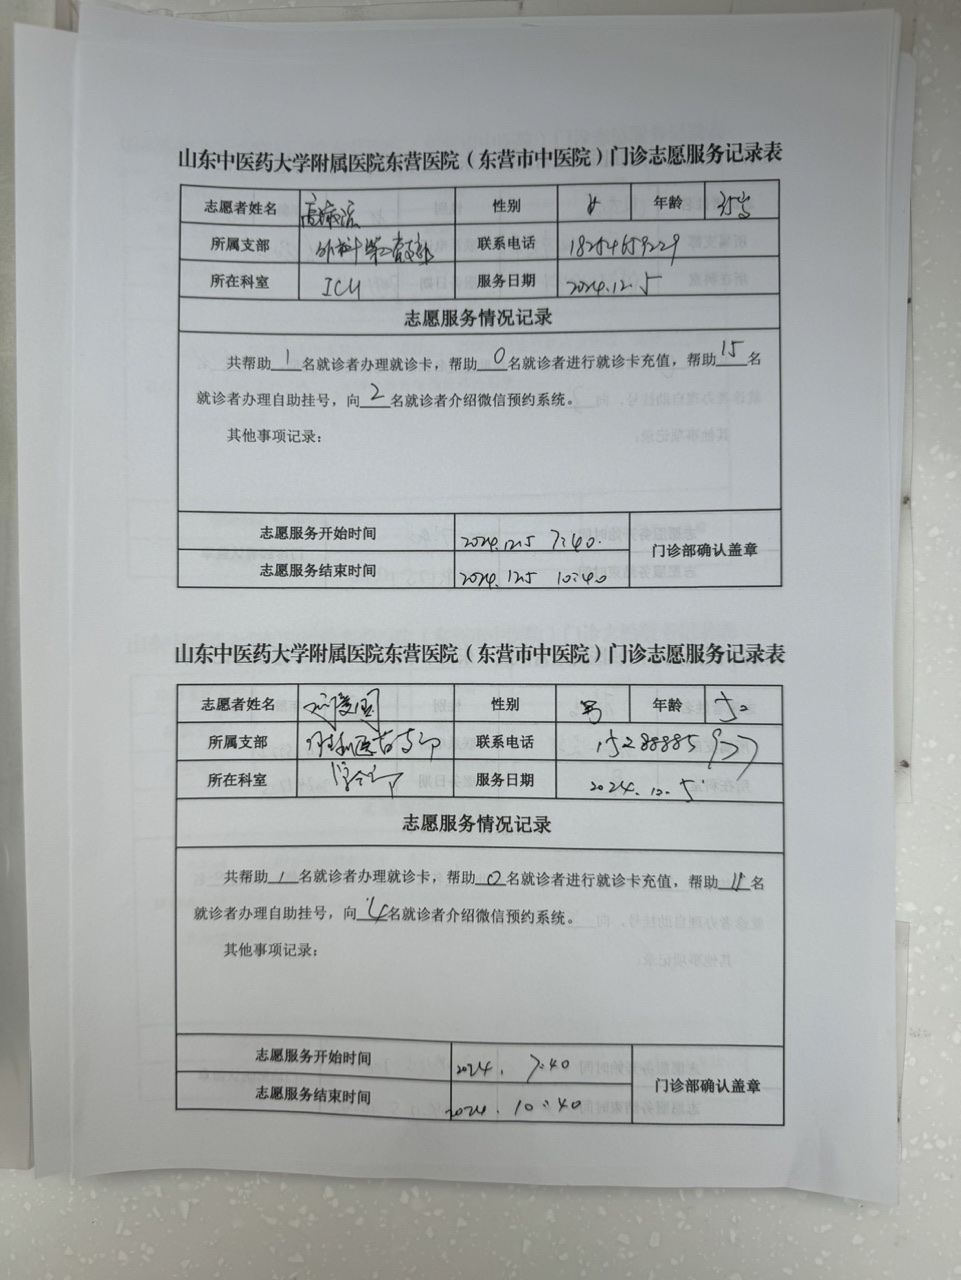 山东中医药大学附属医院东营医院（东营市中医院）门诊志愿服务记录表
志愿者姓名 性别 女 年龄 35岁
所属支部 外科第二支部 联系电话 18254659229
所在科室 ICU 服务日期 2024.12.5
志愿服务情况记录
共帮助1名就诊者办理就诊卡，帮助0名就诊者进行就诊卡充值，帮助15名
就诊者办理自助挂号，向2名就诊者介绍微信预约系统。
其他事项记录：
志愿服务开始时间 2024.12.5 7:40.
门诊部确认盖章
志愿服务结束时间 2024.12.5 10:40
山东中医药大学附属医院东营医院（东营市中医院）门诊志愿服务记录表
志愿者姓名 性别 男 年龄 52
所属支部 联系电话 15288885977
所在科室 服务日期 2024.12.5
志愿服务情况记录
共帮助1名就诊者办理就诊卡，帮助0名就诊者进行就诊卡充值，帮助11名
就诊者办理自助挂号，向4名就诊者介绍微信预约系统。
其他事项记录：
志愿服务开始时间 2024. 7:40
门诊部确认盖章
志愿服务结束时间 2024. 10:40